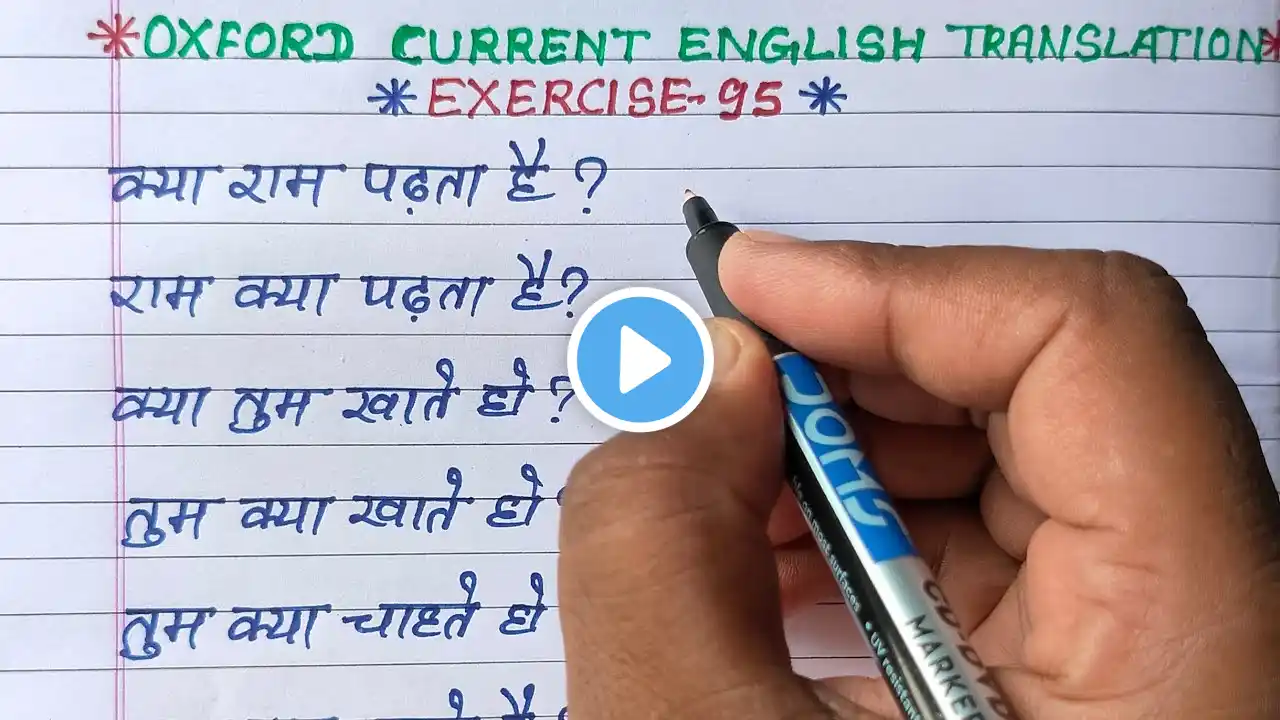 *OXFORD CURRENT ENGLISH TRANSLATION*
*EXERCISE-95*
क्या राम पढ़ता है ?
राम क्या पढ़ता है?
क्या तुम खाते हो ?
तुम क्या खाते हो
तुम क्या चाहते हो
है
DOMS
CD-DVD
MARKER
Use on most surfaces • UV resistant